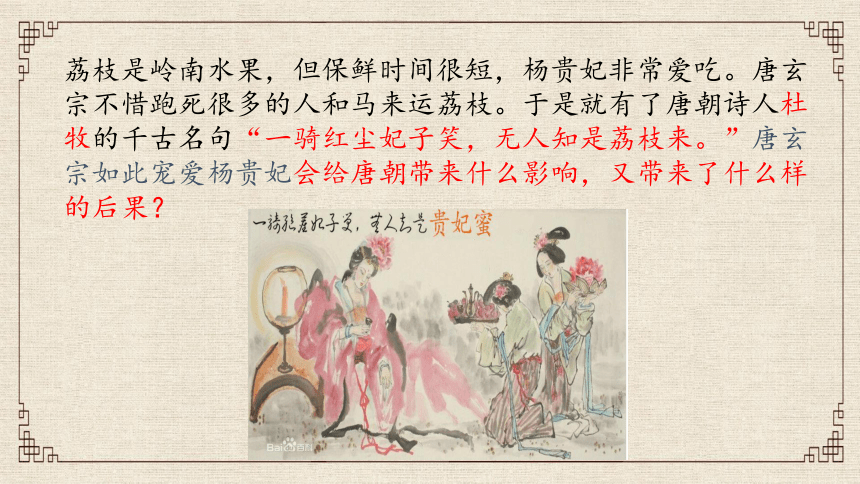 荔枝是岭南水果，但保鲜时间很短，杨贵妃非常爱吃。唐玄
宗不惜跑死很多的人和马来运荔枝。于是就有了唐朝诗人杜
牧的千古名句“一骑红尘妃子笑，无人知是荔枝来。”唐玄
宗如此宠爱杨贵妃会给唐朝带来什么影响，又带来了什么样
的后果？
一骑红尘妃子笑，无人知是贵妃蜜
Baidu百科